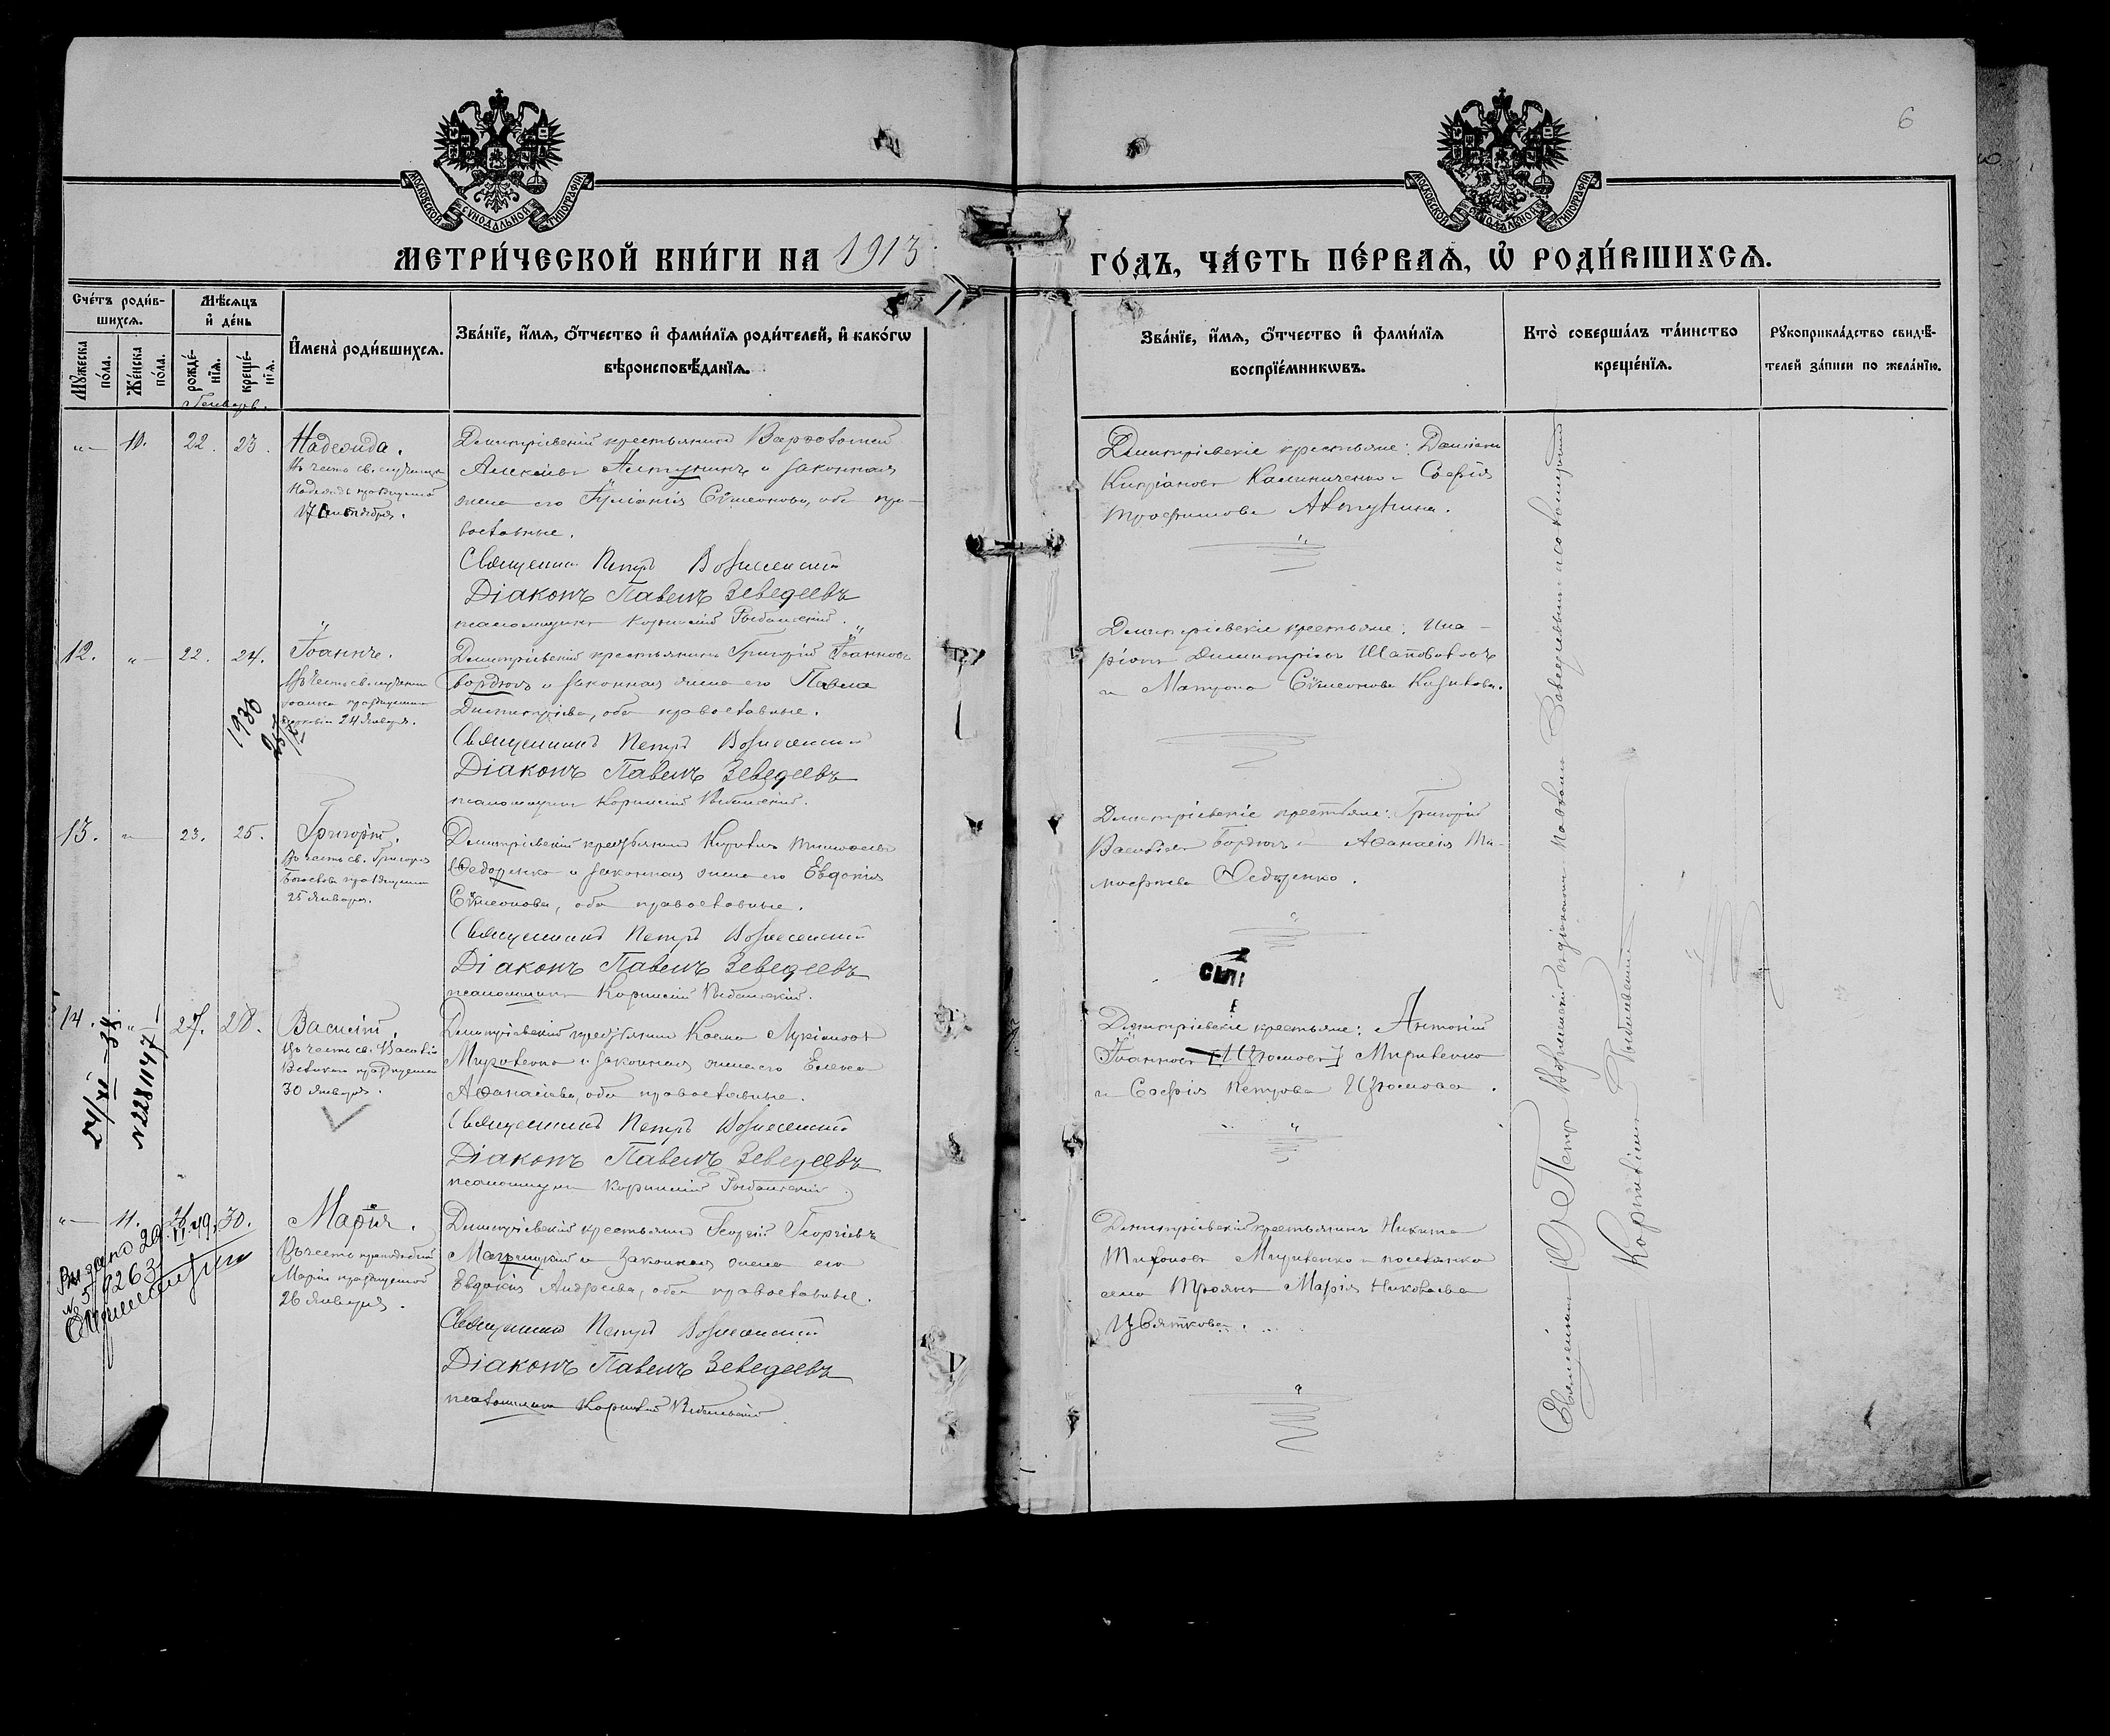 6
МОСКОВСКОЙ СѴНОДАЛЬНОЙ ТИПОГРАФІИ
МОСКОВСКОЙ СѴНОДАЛЬНОЙ ТИПОГРАФІИ
МЕТРИ́ЧЕСКОЙ КНИ́ГИ НА 1913
ГО́ДЪ, ЧА́СТЬ ПЕ́РВАѦ, Ѡ҆ РОДИ́ВШИХСѦ.
Сче́тъ роди́в-
шихсѧ.
Мꙋ́жеска по́ла.
Же́нска по́ла.
Мѣ́сѧцъ
и҆ де́нь
рожде́-
нїѧ.
креще́-
нїѧ.
Января.
И҆мена̀ роди́вшихсѧ.
Зва́нїе, и҆́мѧ, ѻ҆́тчество и҆ фами́лїѧ роди́телей, и҆ како́гѡ
вѣроисповѣ́данїѧ.
Зва́нїе, и҆́мѧ, ѻ҆́тчество и҆ фами́лїѧ
воспрїе́мникѡвъ.
Кто̀ соверша́лъ та́инство
креще́нїѧ.
Рꙋкоприкла́дство свидѣ́-
телей за́писи по жела́нїю.
"— 10. 22. 23.
Надежда.
Въ честь св. мученицы
Надежды празднуемой
17 Сентября.
Димитріевскій крестьянинъ Варѳоломей
Алексіевъ Алтунинъ и законная
жена его Іуліанія Сѵмеонова, оба пра-
вославные.
Священникъ Петръ Вознесенскій
Діаконъ Павелъ Зеведеевъ
псаломщикъ Корнилій Рыбальскій.
Димитріевскіе крестьяне: Даміанъ
Кипріановъ Калиниченко и Софія
Трофимова Алтунина.
12. "— 22. 24.
Іоаннъ.
1936
Димитріевскій крестьянинъ Григорій Іоанновъ
Бордюгъ и законная жена его Павла
Димитріева, оба православные.
Священникъ Петръ Вознесенскій
Діаконъ Павелъ Зеведеевъ
псаломщикъ Корнилій Рыбальскій.
Димитріевскіе крестьяне: Ила-
ріонъ Димитріевъ Шаповаловъ
и Матрона Сѵмеонова Козикова.
13. "— 23. 25.
Григорій.
Въ честь св. Григорія
Богослова празднуемаго
25 Января.
Димитріевскій крестьянинъ Кириллъ Тимоѳеевъ
Ѳедоренко и законная жена его Евдокія
Сѵмеонова, оба православные.
Священникъ Петръ Вознесенскій
Діаконъ Павелъ Зеведеевъ
псаломщикъ Корнилій Рыбальскій.
Димитріевскіе крестьяне: Григорій
Василіевъ Бордюгъ и Аѳанасія Ти-
моѳеева Ѳедоренко.
14. "— 27. 28.
24/XI–38.
№2281147
Василій.
Въ честь св. Василія
Великаго празднуемаго
30 Января.
Димитріевскій крестьянинъ Косма Лукіановъ
Мириленко и законная жена его Елена
Аѳанасіева, оба православные.
Священникъ Петръ Вознесенскій
Діаконъ Павелъ Зеведеевъ
псаломщикъ Корнилій Рыбальскій.
Димитріевскіе крестьяне: Антоній
Іоанновъ [Изюмовъ] Мириленко
и Софія Петрова Изюмова.
"— 11. 26. 30.
Марія.
Въ честь преподобной
Маріи празднуемой
26 Января.
Димитріевскій крестьянинъ Георгій Георгіевъ
и законная жена его
Евдокія Андреева, оба православные.
Священникъ Петръ Вознесенскій
Діаконъ Павелъ Зеведеевъ
псаломщикъ Корнилій Рыбальскій
Димитріевскій крестьянинъ Никита
Тихоновъ Мириленко и поселянка
села Трояны Марія Николаева
Цвяткова.
Священникъ Петръ Вознесенскій съ діакономъ Павломъ Зеведеевымъ и псаломщикомъ
Корниліемъ Рыбальскимъ